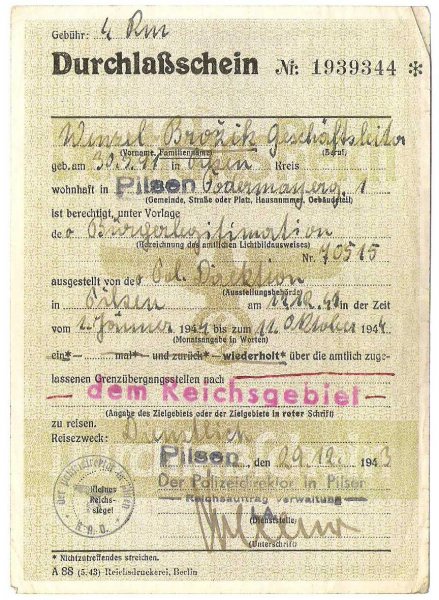 Gebühr: 4 Rm
Durchlaßschein Nr. 1939344 *
Wenzel Brožik Geschäftsleiter
(Vorname, Familienname) (Beruf)
geb. am 30.9. in Pilsen Kreis
wohnhaft in Pilsen 1
(Gemeinde, Straße oder Platz, Hausnummer, Gebäudeteil)
ist berechtigt, unter Vorlage
de Bürgerlegitimation
(Bezeichnung des amtlichen Lichtbildausweises)
Nr. 70515
ausgestellt von de Pol. Direktion
(Ausstellungsbehörde)
in Pilsen am in der Zeit
vom 1. Jänner 1944 bis zum Oktober 1944
(Monatsangabe in Worten)
ein*— mal*— und zurück*— wiederholt* über die amtlich zuge-
lassenen Grenzübergangsstellen nach
— dem Reichsgebiet —
(Angabe des Zielgebiets oder der Zielgebiete in roter Schrift)
zu reisen.
Reisezweck: Dienstlich
Pilsen, den 29.12. 1943
Der Polizeidirektor in Pilsen
Reichsauftragverwaltung
I.A.
(Dienststelle)
Kleines
Reichs-
siegel
(Unterschrift)
* Nichtzutreffendes streichen.
A 88 (5. 43) Reichsdruckerei, Berlin